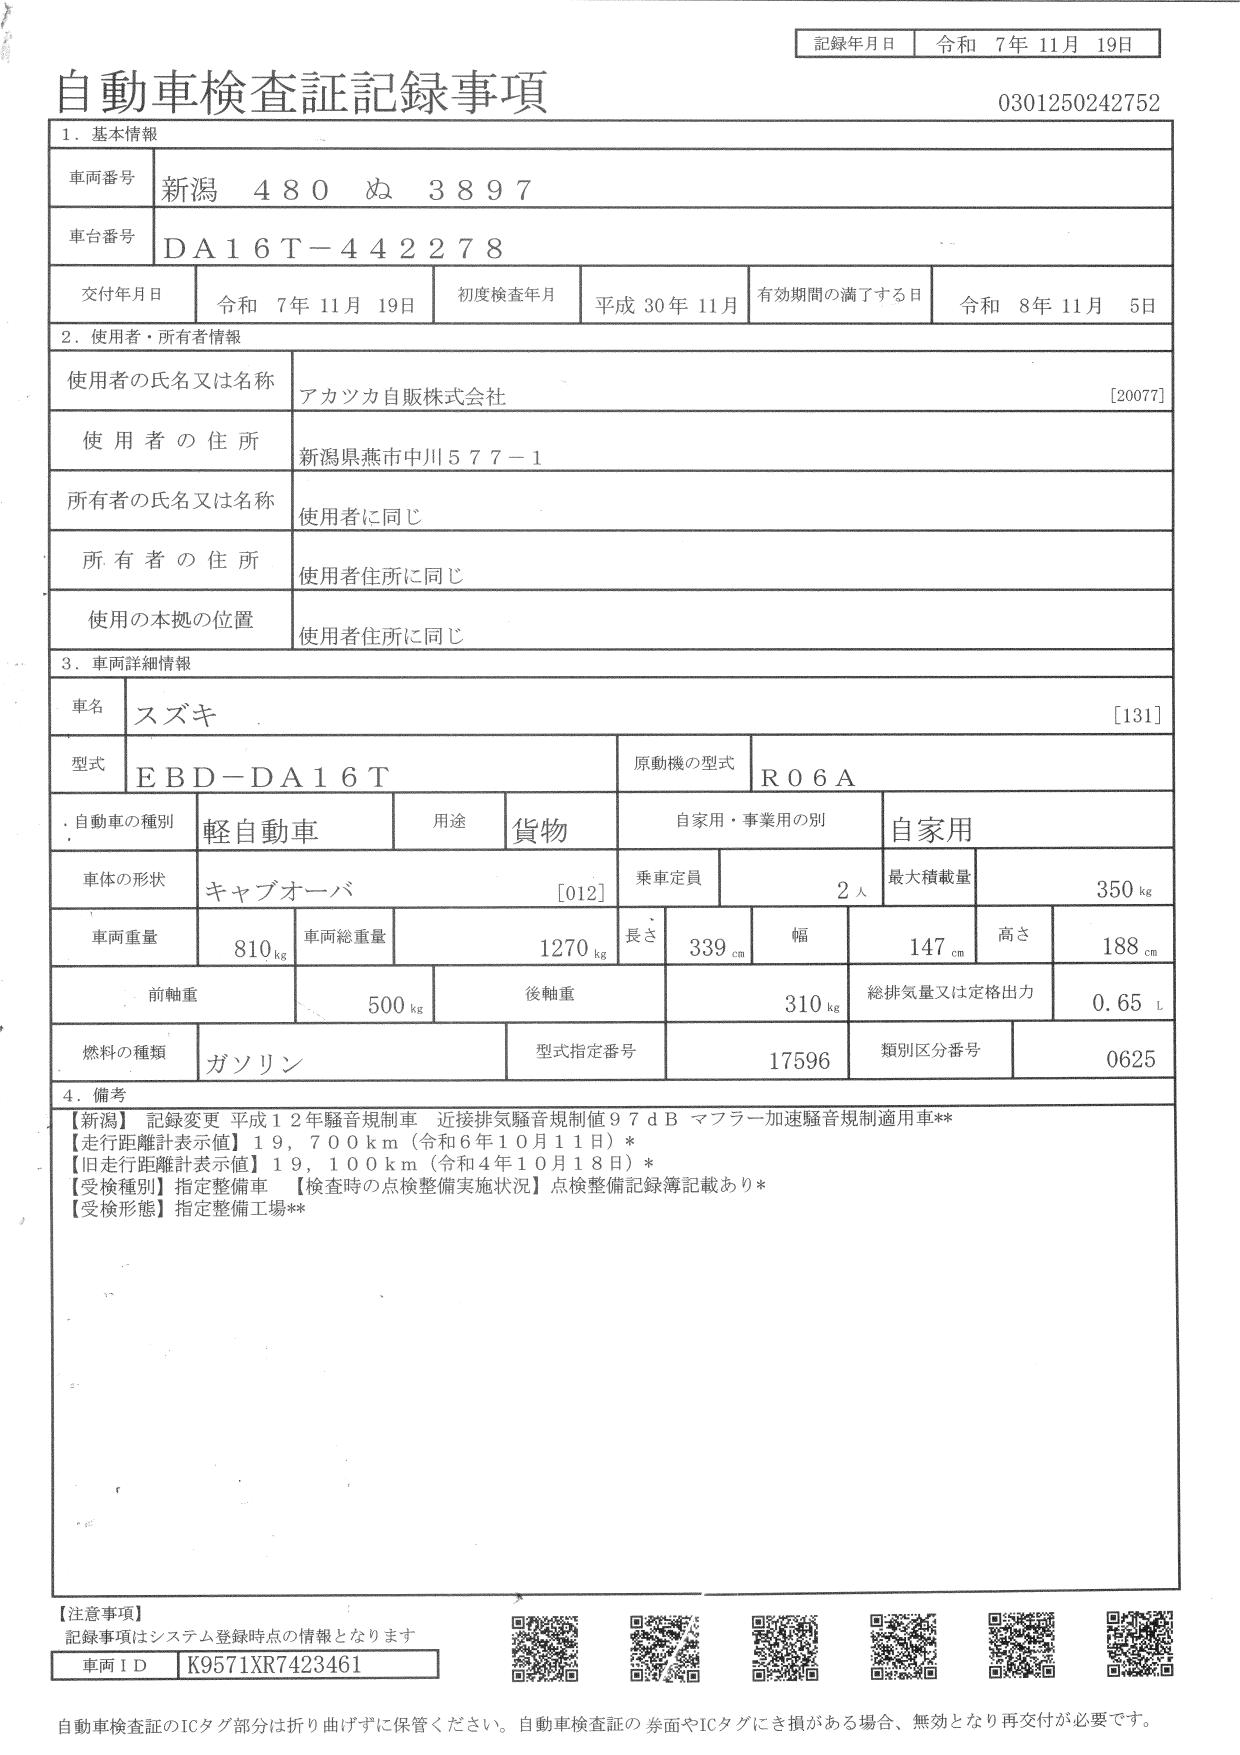 記録年月日 令和 7年 11月 19日
自動車検査証記録事項
0301250242752
1．基本情報
車両番号 新潟 ４８０ ぬ ３８９７
車台番号 ＤＡ１６Ｔ－４４２２７８
交付年月日 令和 7年 11月 19日 初度検査年月 平成 30年 11月 有効期間の満了する日 令和 8年 11月 5日
2．使用者・所有者情報
使用者の氏名又は名称 アカツカ自販株式会社 [20077]
使用者の住所 新潟県燕市中川５７７－１
所有者の氏名又は名称 使用者に同じ
所有者の住所 使用者住所に同じ
使用の本拠の位置 使用者住所に同じ
3．車両詳細情報
車名 スズキ [131]
型式 ＥＢＤ－ＤＡ１６Ｔ 原動機の型式 Ｒ０６Ａ
自動車の種別 軽自動車 用途 貨物 自家用・事業用の別 自家用
車体の形状 キャブオーバ [012] 乗車定員 2人 最大積載量 350kg
車両重量 810kg 車両総重量 1270kg 長さ 339cm 幅 147cm 高さ 188cm
前軸重 500kg 後軸重 310kg 総排気量又は定格出力 0.65 L
燃料の種類 ガソリン 型式指定番号 17596 類別区分番号 0625
4．備考
【新潟】 記録変更 平成１２年騒音規制車 近接排気騒音規制値９７ｄＢ マフラー加速騒音規制適用車**
【走行距離計表示値】１９，７００ｋｍ（令和６年１０月１１日）*
【旧走行距離計表示値】１９，１００ｋｍ（令和４年１０月１８日）*
【受検種別】指定整備車 【検査時の点検整備実施状況】点検整備記録簿記載あり*
【受検形態】指定整備工場**
【注意事項】
記録事項はシステム登録時点の情報となります
車両ＩＤ K9571XR7423461
自動車検査証のICタグ部分は折り曲げずに保管ください。自動車検査証の 券面やICタグにき損がある場合、無効となり再交付が必要です。